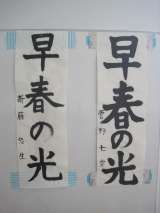 早春の光
早春の光